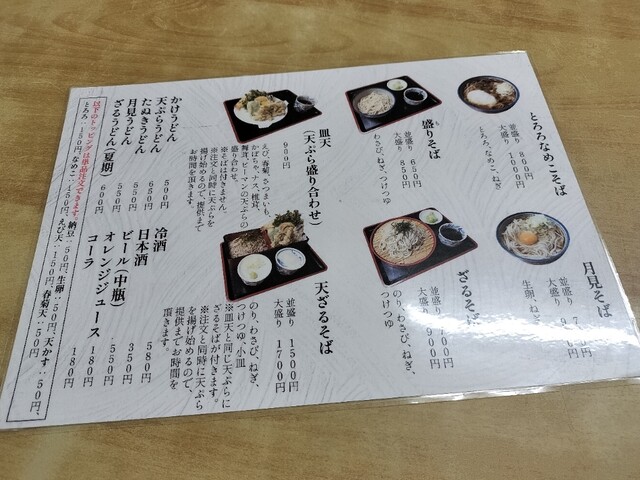 とろろなめこそば
並盛り 800円
大盛り 1000円
とろろ、なめこ、ねぎ
盛りそば
並盛り 650円
大盛り 850円
わさび、ねぎ、つけつゆ
皿天
(天ぷら盛り合わせ)
900円
えび、春菊、さつまいも、
かぼちゃ、ナス、椎茸、
舞茸、ピーマンの天ぷらの
盛り合わせ。
※そばは付きません。
※注文と同時に天ぷらを
揚げ始めるので、提供まで
お時間を頂きます。
かけうどん 500円
天ぷらうどん 650円
たぬきうどん 550円
月見うどん 550円
ざるうどん(夏期) 600円
月見そば
並盛り
大盛り
生卵、ねぎ
ざるそば
並盛り 700円
大盛り 900円
のり、わさび、ねぎ、
つけつゆ
天ざるそば
並盛り 1500円
大盛り 1700円
のり、わさび、ねぎ、
つけつゆ、小皿
※皿天と同じ天ぷらに
ざるそばが付きます。
※注文と同時に天ぷら
を揚げ始めるので、
提供までお時間を
頂きます。
冷酒 580円
日本酒 350円
ビール(中瓶) 550円
オレンジジュース 180円
コーラ 180円
以下のトッピングは単品注文できます。納豆‥50円、生卵‥50円、天かす‥50円、
とろろ‥150円、なめこ‥150円、えび天‥150円、春菊天‥50円